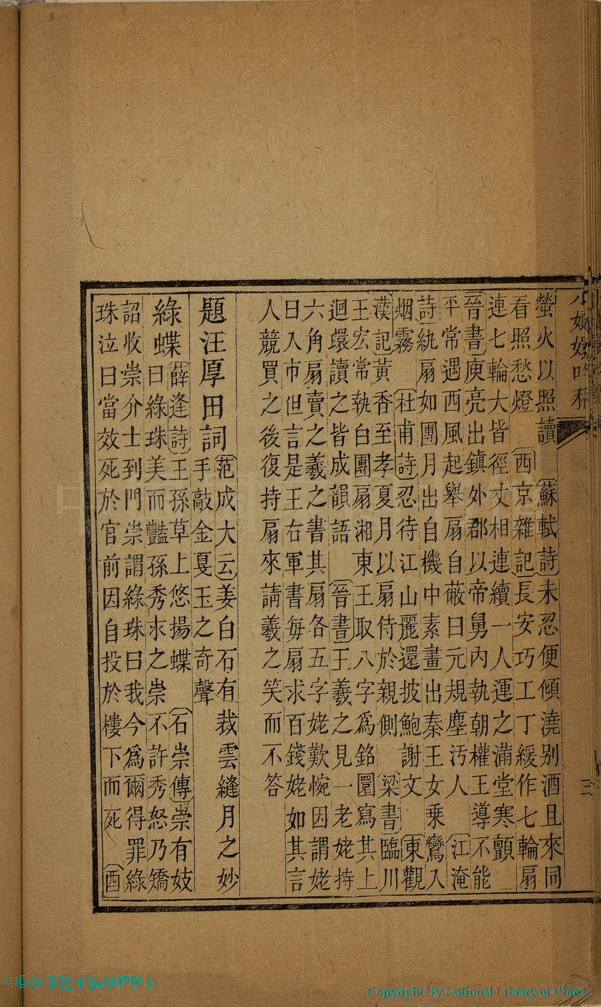 螢火以照讀　蘇軾詩未忍便傾澆别酒且來同
看照愁燈　西京雜記長安巧工丁緩作七輪扇
連七輪大皆徑丈相連續一人運之滿堂寒顫
晉書庾亮出鎮外郡以帝舅內執朝權王導不能
平常遇西風起舉扇自蔽曰元規塵汚人　江淹
詩紈扇如團月出自機中素畫出秦王女乘鸞入
烟霧　杜甫詩忍待江山麗還披鮑謝文　東觀
漢記黃香至孝夏月以扇侍於親側　梁書臨川
王宏常執白團扇湘東王取八字爲銘圍寫其上
迴環讀之皆成韻語　晉書王羲之見一老姥持
六角扇賣之羲之書其扇各五字姥歎惋因謂姥
曰入市但言是王右軍書每扇求百錢姥如其言
人競買之後復持扇來請羲之笑而不答
題汪厚田詞
范成大云姜白石有裁雲縫月之妙
手敲金戛玉之奇聲
綠蝶　薛逢詩王孫草上悠揚蝶　石崇傳崇有妓
曰綠珠美而豔孫秀求之崇不許秀怒乃矯
詔收崇介士到門崇謂綠珠曰我今爲爾得罪綠
珠泣曰當效死於官前因自投於樓下而死　酉
三
Copyright By National Library of China